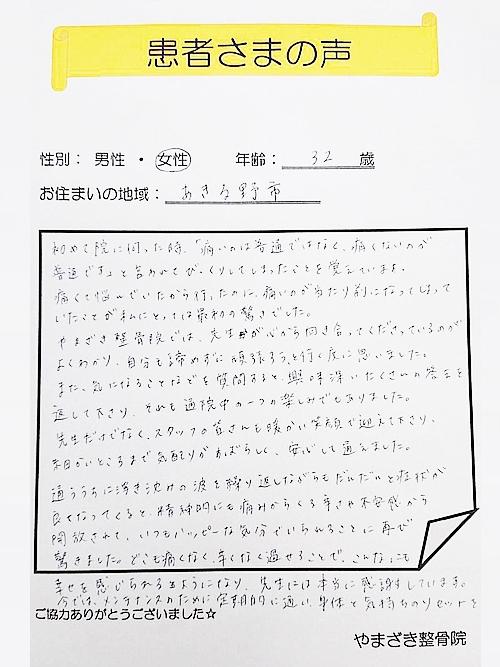 患者さまの声
性別： 男性 ・ 女性　年齢： 32 歳
お住まいの地域： あきる野市
初めて院に伺った時、「痛いのは普通ではなく、痛くないのが
普通です」と言われてびっくりしてしまったことを覚えています。
痛くて悩んでいたから行ったのに、痛いのが当たり前になってしまって
いたことが私にとっては最初の驚きでした。
やまざき整骨院では、先生が心から向き合ってくださっているのが
よくわかり、自分も諦めずに頑張ろうと行く度に思いました。
また、気になることなどを質問すると、興味深いたくさんの答えを
返して下さり、それも通院中の一つの楽しみでもありました。
先生だけでなく、スタッフの皆さんも暖かい笑顔で迎えて下さり、
細かいところまで気配りがすばらしく、安心して通えました。
通ううちに浮き沈みの波を繰り返しながらもだんだんと症状が
良くなってくると、精神的にも痛みからくる辛さや不安感から
開放されて、いつもハッピーな気分でいられることに再び
驚きました。どこも痛くなく、辛くなく過せることで、こんなにも
幸せを感じられるようになり、先生には本当に感謝しています。
今では、メンテナンスのために定期的に通い、身体と気持ちのリセットを
ご協力ありがとうございました☆
やまざき整骨院